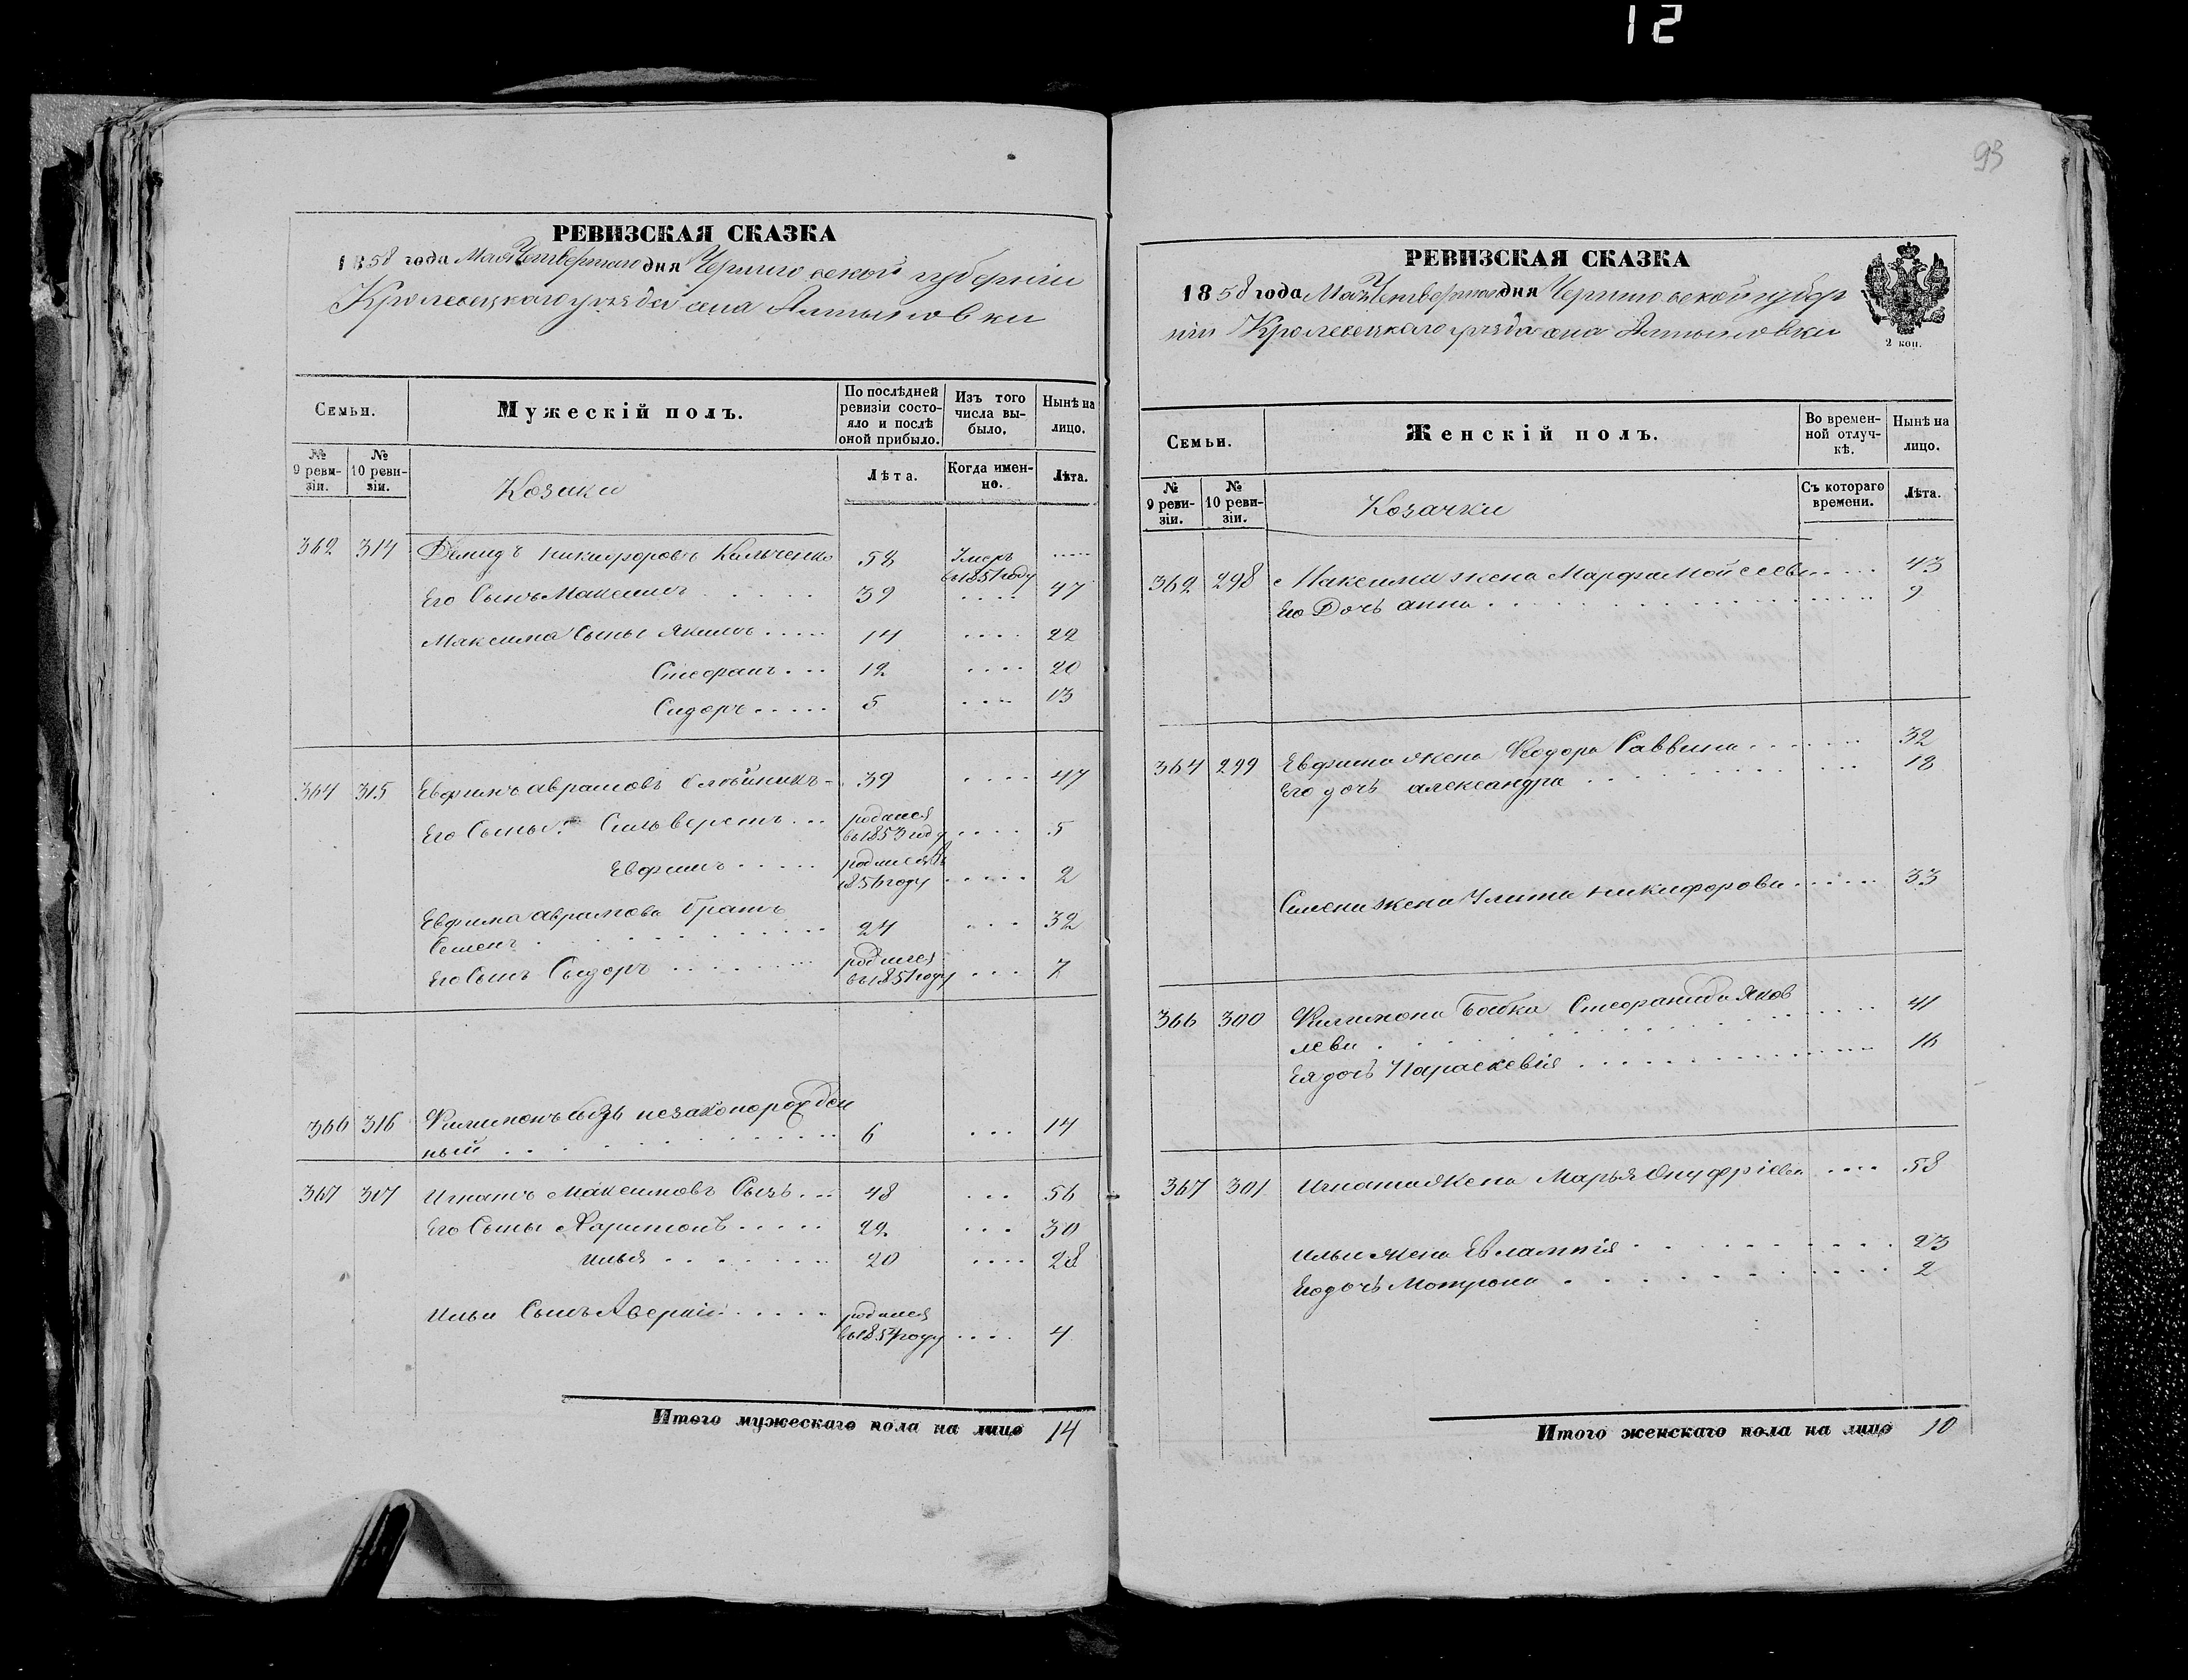 12
РЕВИЗСКАЯ СКАЗКА
1858 года Мая Четвертаго дня Черниговской губерніи
Кролевецкаго уезда села Алтыновки
Семьи.
Мужескій полъ.
По послѣдней ревизіи состояло и послѣ оной прибыло.
Изъ того числа выбыло.
Нынѣ на лицо.
№ 9 ревизіи.
№ 10 ревизіи.
Козаки
Лѣта.
Когда именно.
Лѣта.
362 314 Демидъ Никифоровъ Кальченко 58 Умеръ въ 1851 году .....
Его Сынъ Максимъ ..... 39 .... 47
Максима Сыны Якимъ ..... 14 .... 22
Стефанъ ... 12 .... 20
Сидоръ ..... 5 .... 13
364 315 Евфимъ Аврамовъ Олейникъ - 39 .... 47
Его Сыны: Сильверстъ ... родился въ 1853 году .... 5
Евфимъ ..... родился въ 1856 году ..... 2
Евфима Аврамова братъ
Семенъ ..... 24 ... 32
Его Сынъ Сыдоръ ..... родился въ 1851 году ... 7
366 316 Филимонъ Сызь незаконорожден
ный ..... 6 ... 14
367 317 Игнатъ Максимовъ Сызь ... 48 ... 56
Его Сыны Харитонъ ..... 22 ... 30
Илья ..... 20 .... 28
Ильи Сынъ Аверкій ..... родился въ 1854 году .... 4
Итого мужескаго пола на лицо 14
93
РЕВИЗСКАЯ СКАЗКА
1858 года Мая Четвертаго дня Черниговской губер
ніи Кролевецкаго уезда села Алтыновки
2 коп.
Семьи.
Женскій полъ.
Во временной отлучкѣ.
Нынѣ на лицо.
№ 9 ревизіи.
№ 10 ревизіи.
Козачки
Съ котораго времени.
Лѣта.
362 298 Максима жена Марфа Мойсеева ..... 43
Его Дочь Анна ..... 9
364 299 Евфима жена Феодора Саввина ..... 32
Его дочь Александра ..... 18
Семена жена Улита Никифорова ..... 33
366 300 Филимона Бабка Стефанида Яков
лева ..... 41
Ея дочь Параскевія ..... 16
367 301 Игната жена Марья Онуфріева .... 58
Ильи жена Евлампія ..... 23
Его дочь Мотрона ..... 2
Итого женскаго пола на лицо 10